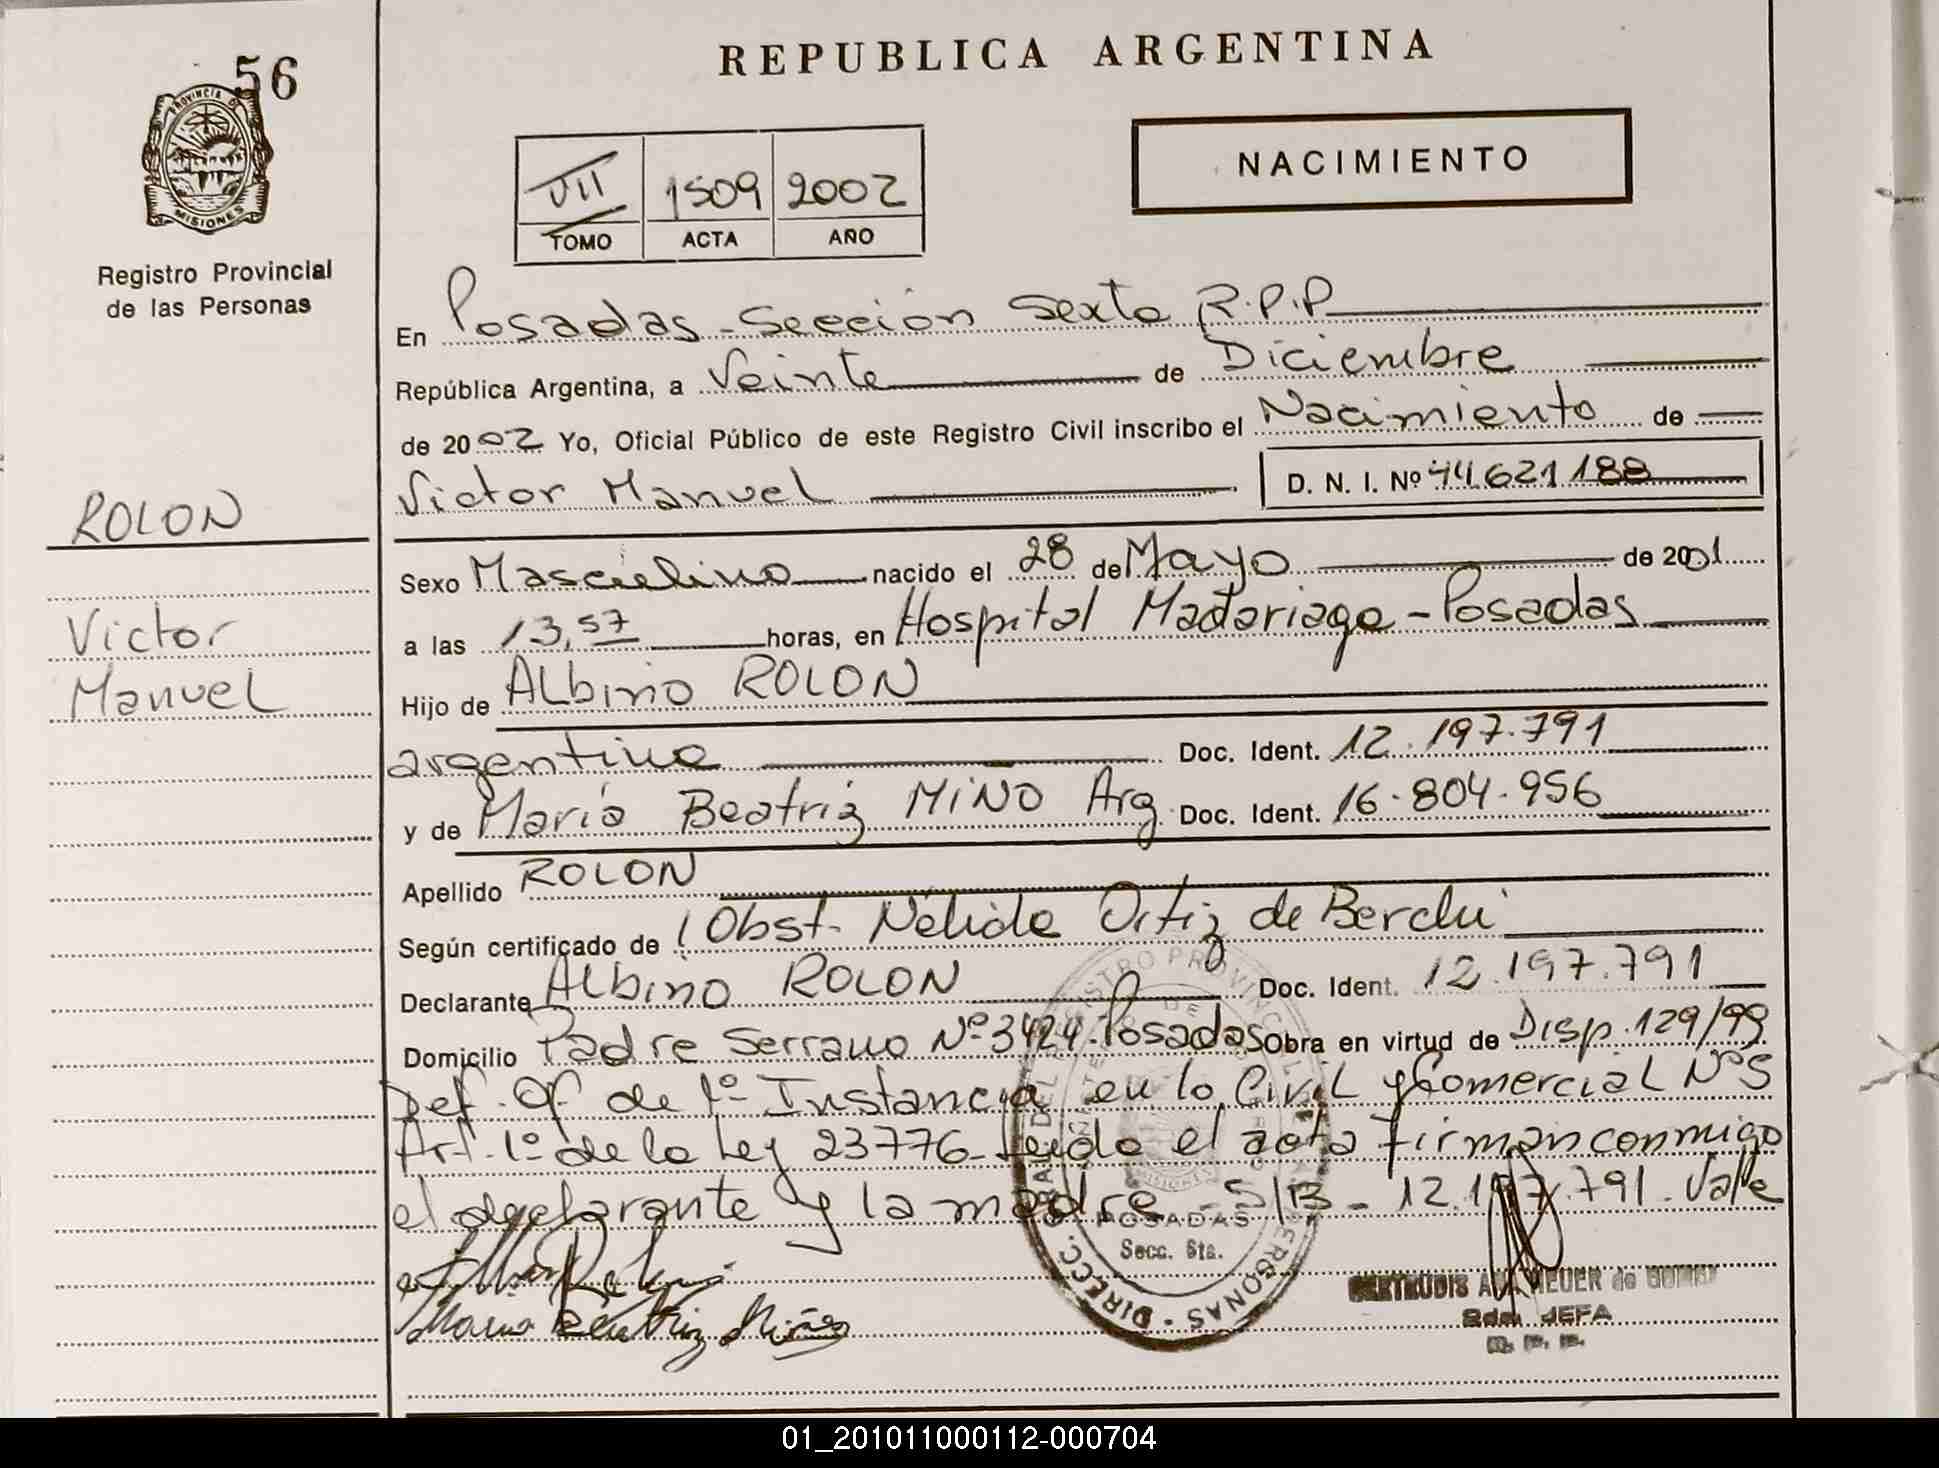 56
PROVINCIA DE
MISIONES
Registro Provincial
de las Personas
ROLON
Victor
Manuel
REPUBLICA ARGENTINA
NACIMIENTO
VII 1509 2002
TOMO ACTA AÑO
En Posadas-Sección Sexta R.P.P
República Argentina, a Veinte de Diciembre
de 2002 Yo, Oficial Público de este Registro Civil inscribo el Nacimiento de
Victor Manuel D. N. I. Nº 44.621.188
Sexo Masculino nacido el 28 de Mayo de 2001
a las 13,57 horas, en Hospital Madariaga-Posadas
Hijo de Albino ROLON
argentino Doc. Ident. 12.197.791
y de María Beatriz MIÑO Arg. Doc. Ident. 16.804.956
Apellido ROLON
Según certificado de Obst. Nélida Ortiz de
Declarante Albino ROLON Doc. Ident. 12.197.791
Domicilio Padre Serrano Nº 3424-Posadas Obra en virtud de Disp. 129/99
Def. Of. de 1º Instancia en lo Civil y Comercial Nº5
Art. 1º de la Ley 23776- Leída el acta firman conmigo
el declarante y la madre - S/B - 12.197.791. Vale
Maria Beatriz Miño
DIRECC. GRAL. DEL REGISTRO PROVINCIAL DE LAS PERSONAS
MISIONES
POSADAS
Secc. 6ta.
GERTRUDIS de
JEFA
R. P. P.
01_201011000112-000704